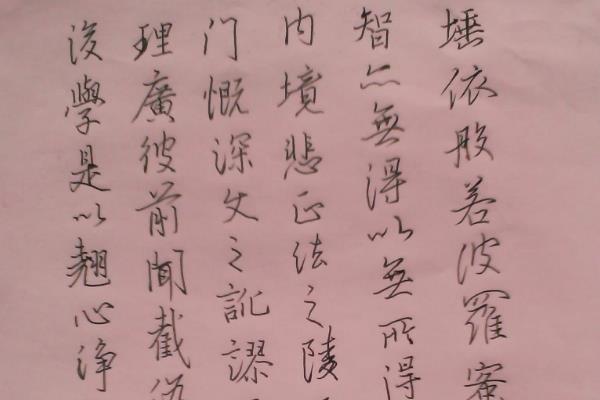 埵依般若波羅蜜
智亦無得以無所得
内境悲正法之陵
门慨深文之訛謬
理廣彼前聞截
後學是以翹心淨